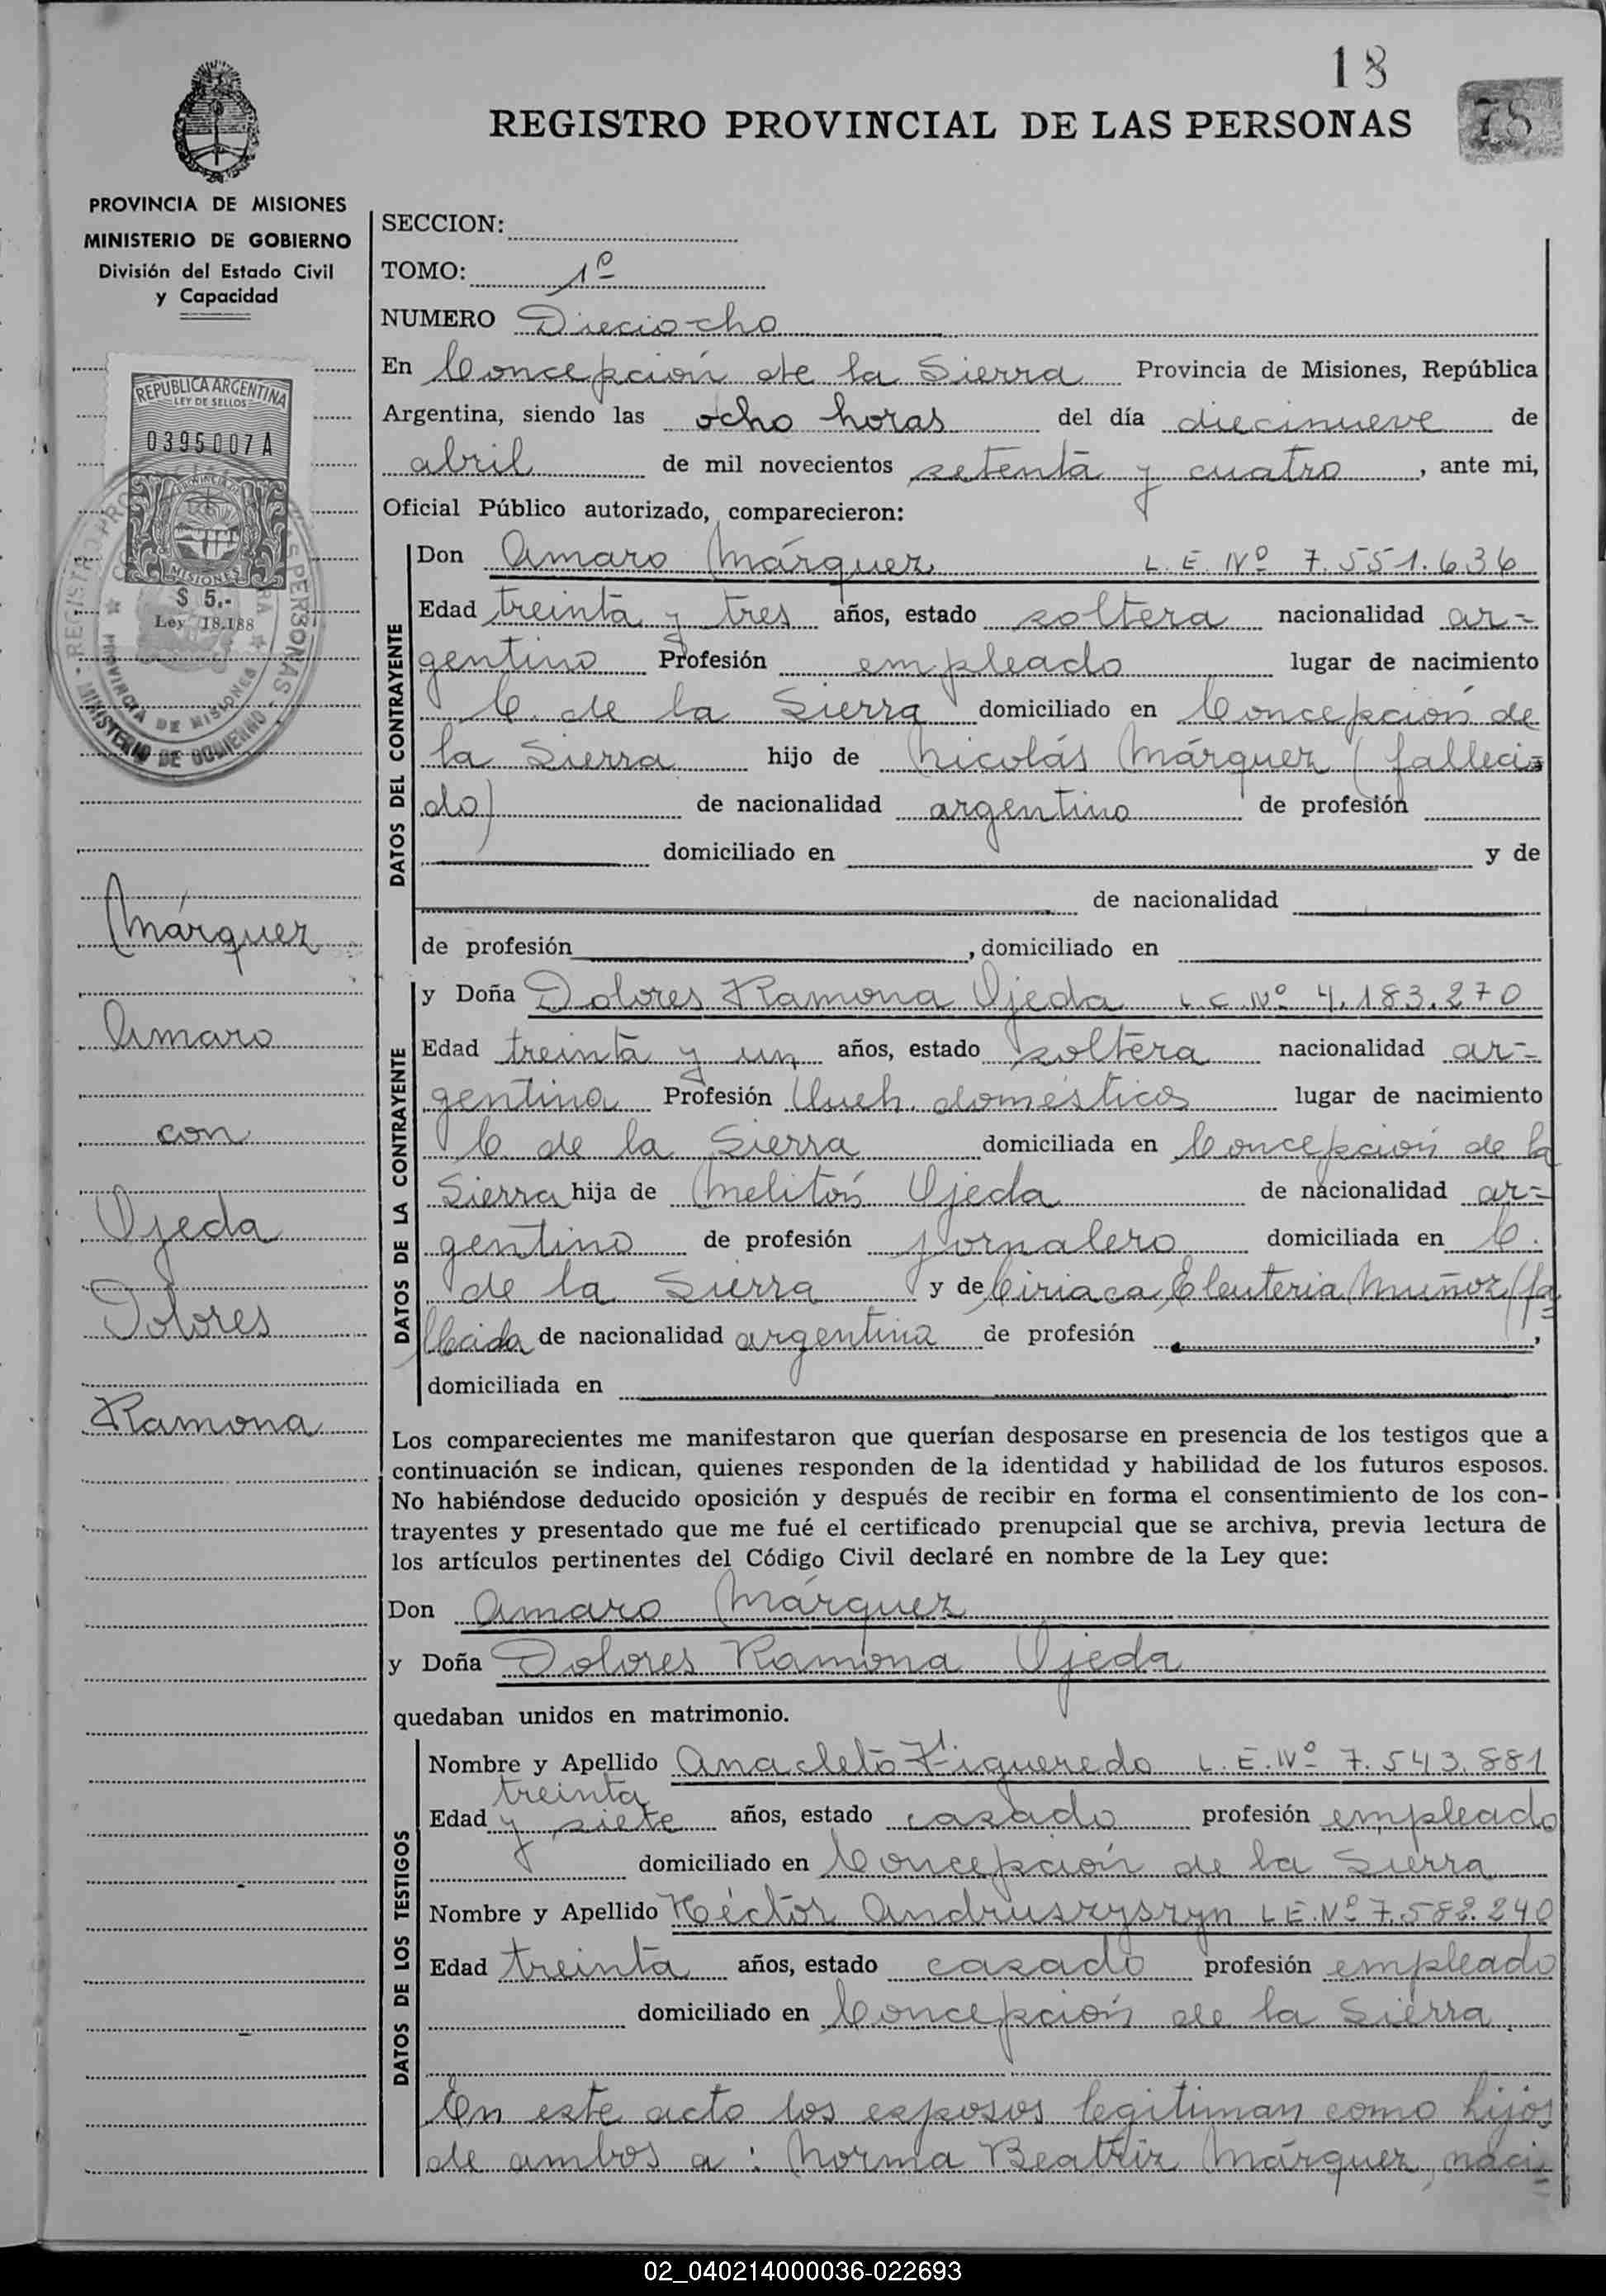 18
REGISTRO PROVINCIAL DE LAS PERSONAS
78
PROVINCIA DE MISIONES
MINISTERIO DE GOBIERNO
División del Estado Civil
y Capacidad
REPUBLICA ARGENTINA
LEY DE SELLOS
0395007A
PROVINCIA DE
MISIONES
$ 5.-
Ley 18.188
PROVINCIA DE MISIONES
MINISTERIO DE GOBIERNO
Márquez
Amaro
con
Ojeda
Dolores
Ramona
SECCION:
TOMO: 1º
NUMERO Dieciocho
En Concepción de la Sierra Provincia de Misiones, República
Argentina, siendo las ocho horas del día diecinueve de
abril de mil novecientos setenta y cuatro, ante mi,
Oficial Público autorizado, comparecieron:
DATOS DEL CONTRAYENTE
Don Amaro Márquez L. E. Nº 7.551.636
Edad treinta y tres años, estado soltera nacionalidad ar=
gentino Profesión empleado lugar de nacimiento
C. de la Sierra domiciliado en Concepción de
la Sierra hijo de Nicolás Márquez (falleci=
do) de nacionalidad argentino de profesión
domiciliado en y de
de nacionalidad
de profesión , domiciliado en
DATOS DE LA CONTRAYENTE
y Doña Dolores Ramona Ojeda L.C.Nº 4.183.270
Edad treinta y un años, estado soltera nacionalidad ar=
gentina Profesión Queh. domésticos lugar de nacimiento
C. de la Sierra domiciliada en Concepción de la
Sierra hija de Melitón Ojeda de nacionalidad ar=
gentino de profesión jornalero domiciliada en C.
de la Sierra y de Ciriaca Eleuteria Muñoz (fa=
llecida de nacionalidad argentina de profesión ,
domiciliada en
Los comparecientes me manifestaron que querían desposarse en presencia de los testigos que a
continuación se indican, quienes responden de la identidad y habilidad de los futuros esposos.
No habiéndose deducido oposición y después de recibir en forma el consentimiento de los con-
trayentes y presentado que me fué el certificado prenupcial que se archiva, previa lectura de
los artículos pertinentes del Código Civil declaré en nombre de la Ley que:
Don Amaro Márquez
y Doña Dolores Ramona Ojeda
quedaban unidos en matrimonio.
DATOS DE LOS TESTIGOS
Nombre y Apellido Anacleto Figueredo L.E.Nº 7.543.881
treinta
Edad y siete años, estado casado profesión empleado
domiciliado en Concepción de la Sierra
Nombre y Apellido Héctor Andruszyszyn L.E.Nº 7.582.240
Edad treinta años, estado casado profesión empleado
domiciliado en Concepción de la Sierra.
En este acto los esposos legitiman como hijos
de ambos a: Norma Beatriz Márquez, naci=
02_040214000036-022693